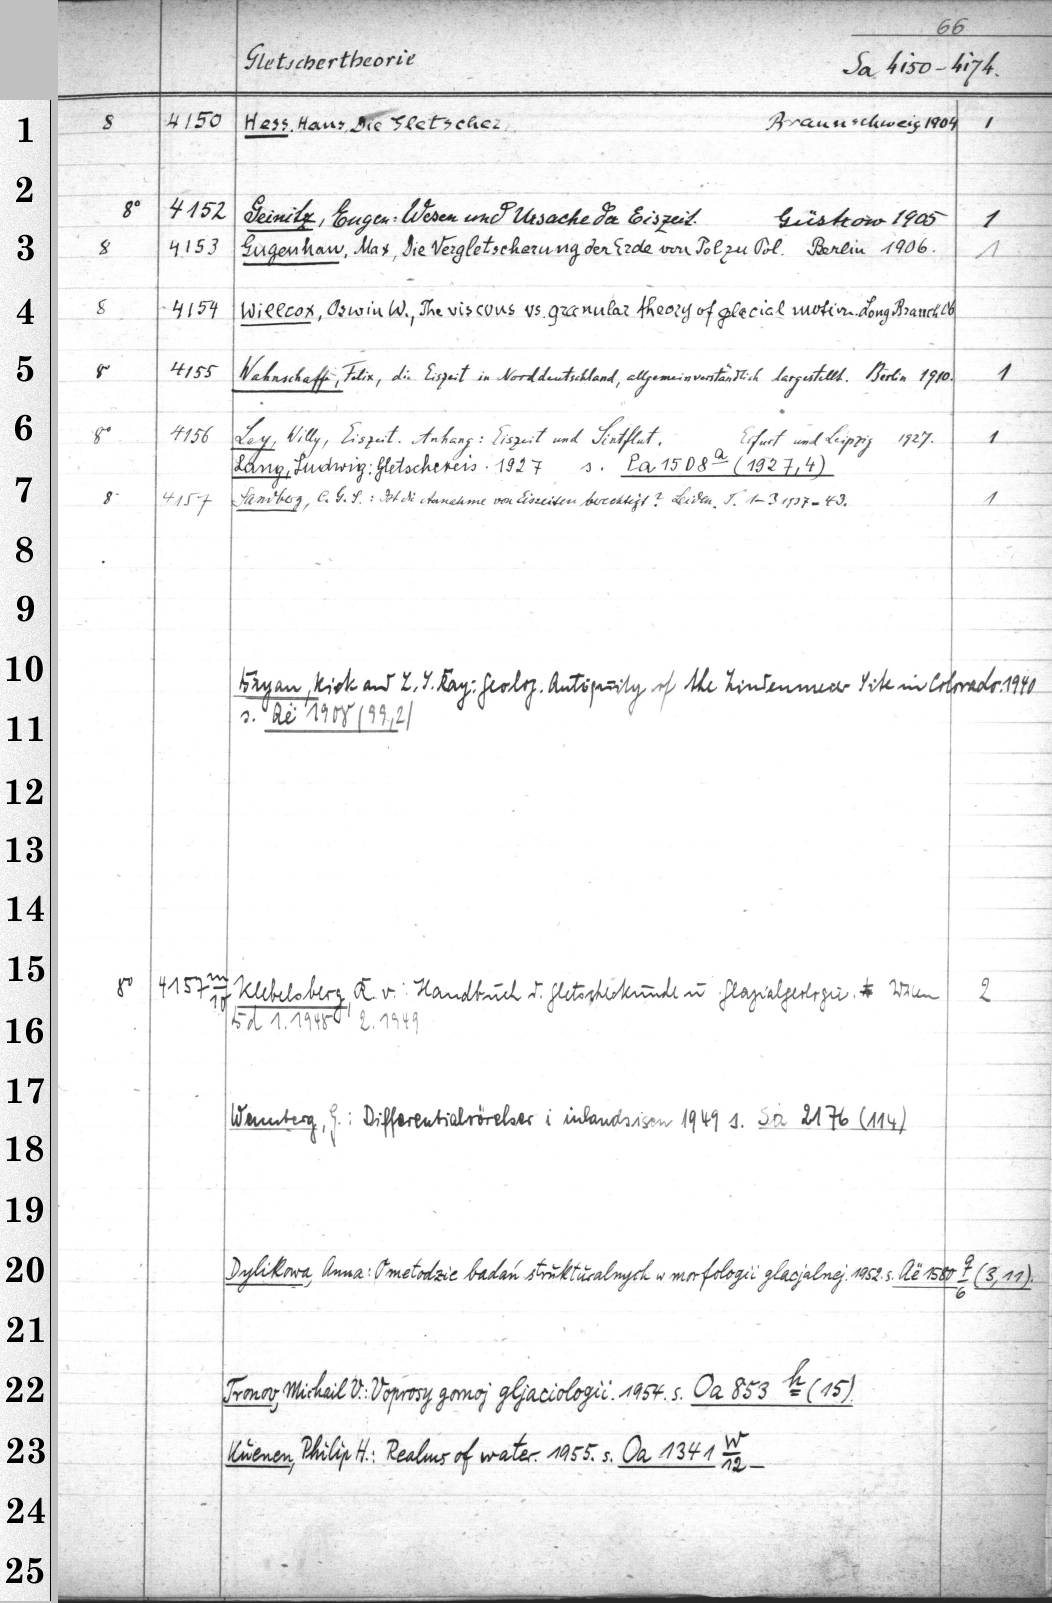 66
Gletschertheorie Sa 4150-4174.
1 8 4150 Hess, Hans, Die Gletscher. Braunschweig 1904 1
2 8° 4152 Geinitz, Eugen: Wesen und Ursache der Eiszeit. Güstrow 1905 1
3 8 4153 Gugenhan, Max, Die Vergletscherung der Erde von Pol zu Pol. Berlin 1906. 1
4 8 4154 Willcox, Oswin W., The viscous vs. granular theory of glacial motion. Long Branch 06
5 8° 4155 Wahnschaffe, Felix, die Eiszeit in Norddeutschland, allgemeinverständlich dargestellt. Berlin 1910. 1
6 8° 4156 Ley, Willy, Eiszeit. Anhang: Eiszeit und Sintflut. Erfurt und Leipzig 1927. 1
Lang, Ludwig: Gletschereis. 1927 s. Pa 1508 a (1927,4)
7 8 4157 Sandberg, C. G. S.: Ist die Annahme von Eiszeiten berechtigt? Leiden. T. 1-3 1937-43. 1
8
9
10 Bryan, Kirk and L. L. Ray: Geolog. Antiquity of the Lindenmeier Site in Colorado. 1940
11 s. Aë 1908 (99,2)
12
13
14
15 8° 4157 m/10 Klebelsberg, R. v.: Handbuch d. Gletscherkunde u. Glazialgeologie. Wien 2
16 Bd 1. 1948 2. 1949
17 Wennberg, G.: Differentialrörelser i inlandsisen 1949 s. Sa 2176 (114)
18
19
20 Dylikowa, Anna: O metodzie badań strukturalnych w morfologii glacjalnej. 1952. s. Aë 1580 q/6 (3,11).
21
22 Tronov, Michail V.: Voprosy gornoj gljaciologii. 1954. s. Oa 853 h (15).
23 Kuenen, Philip H.: Realms of water. 1955. s. Oa 1341 w/12
24
25